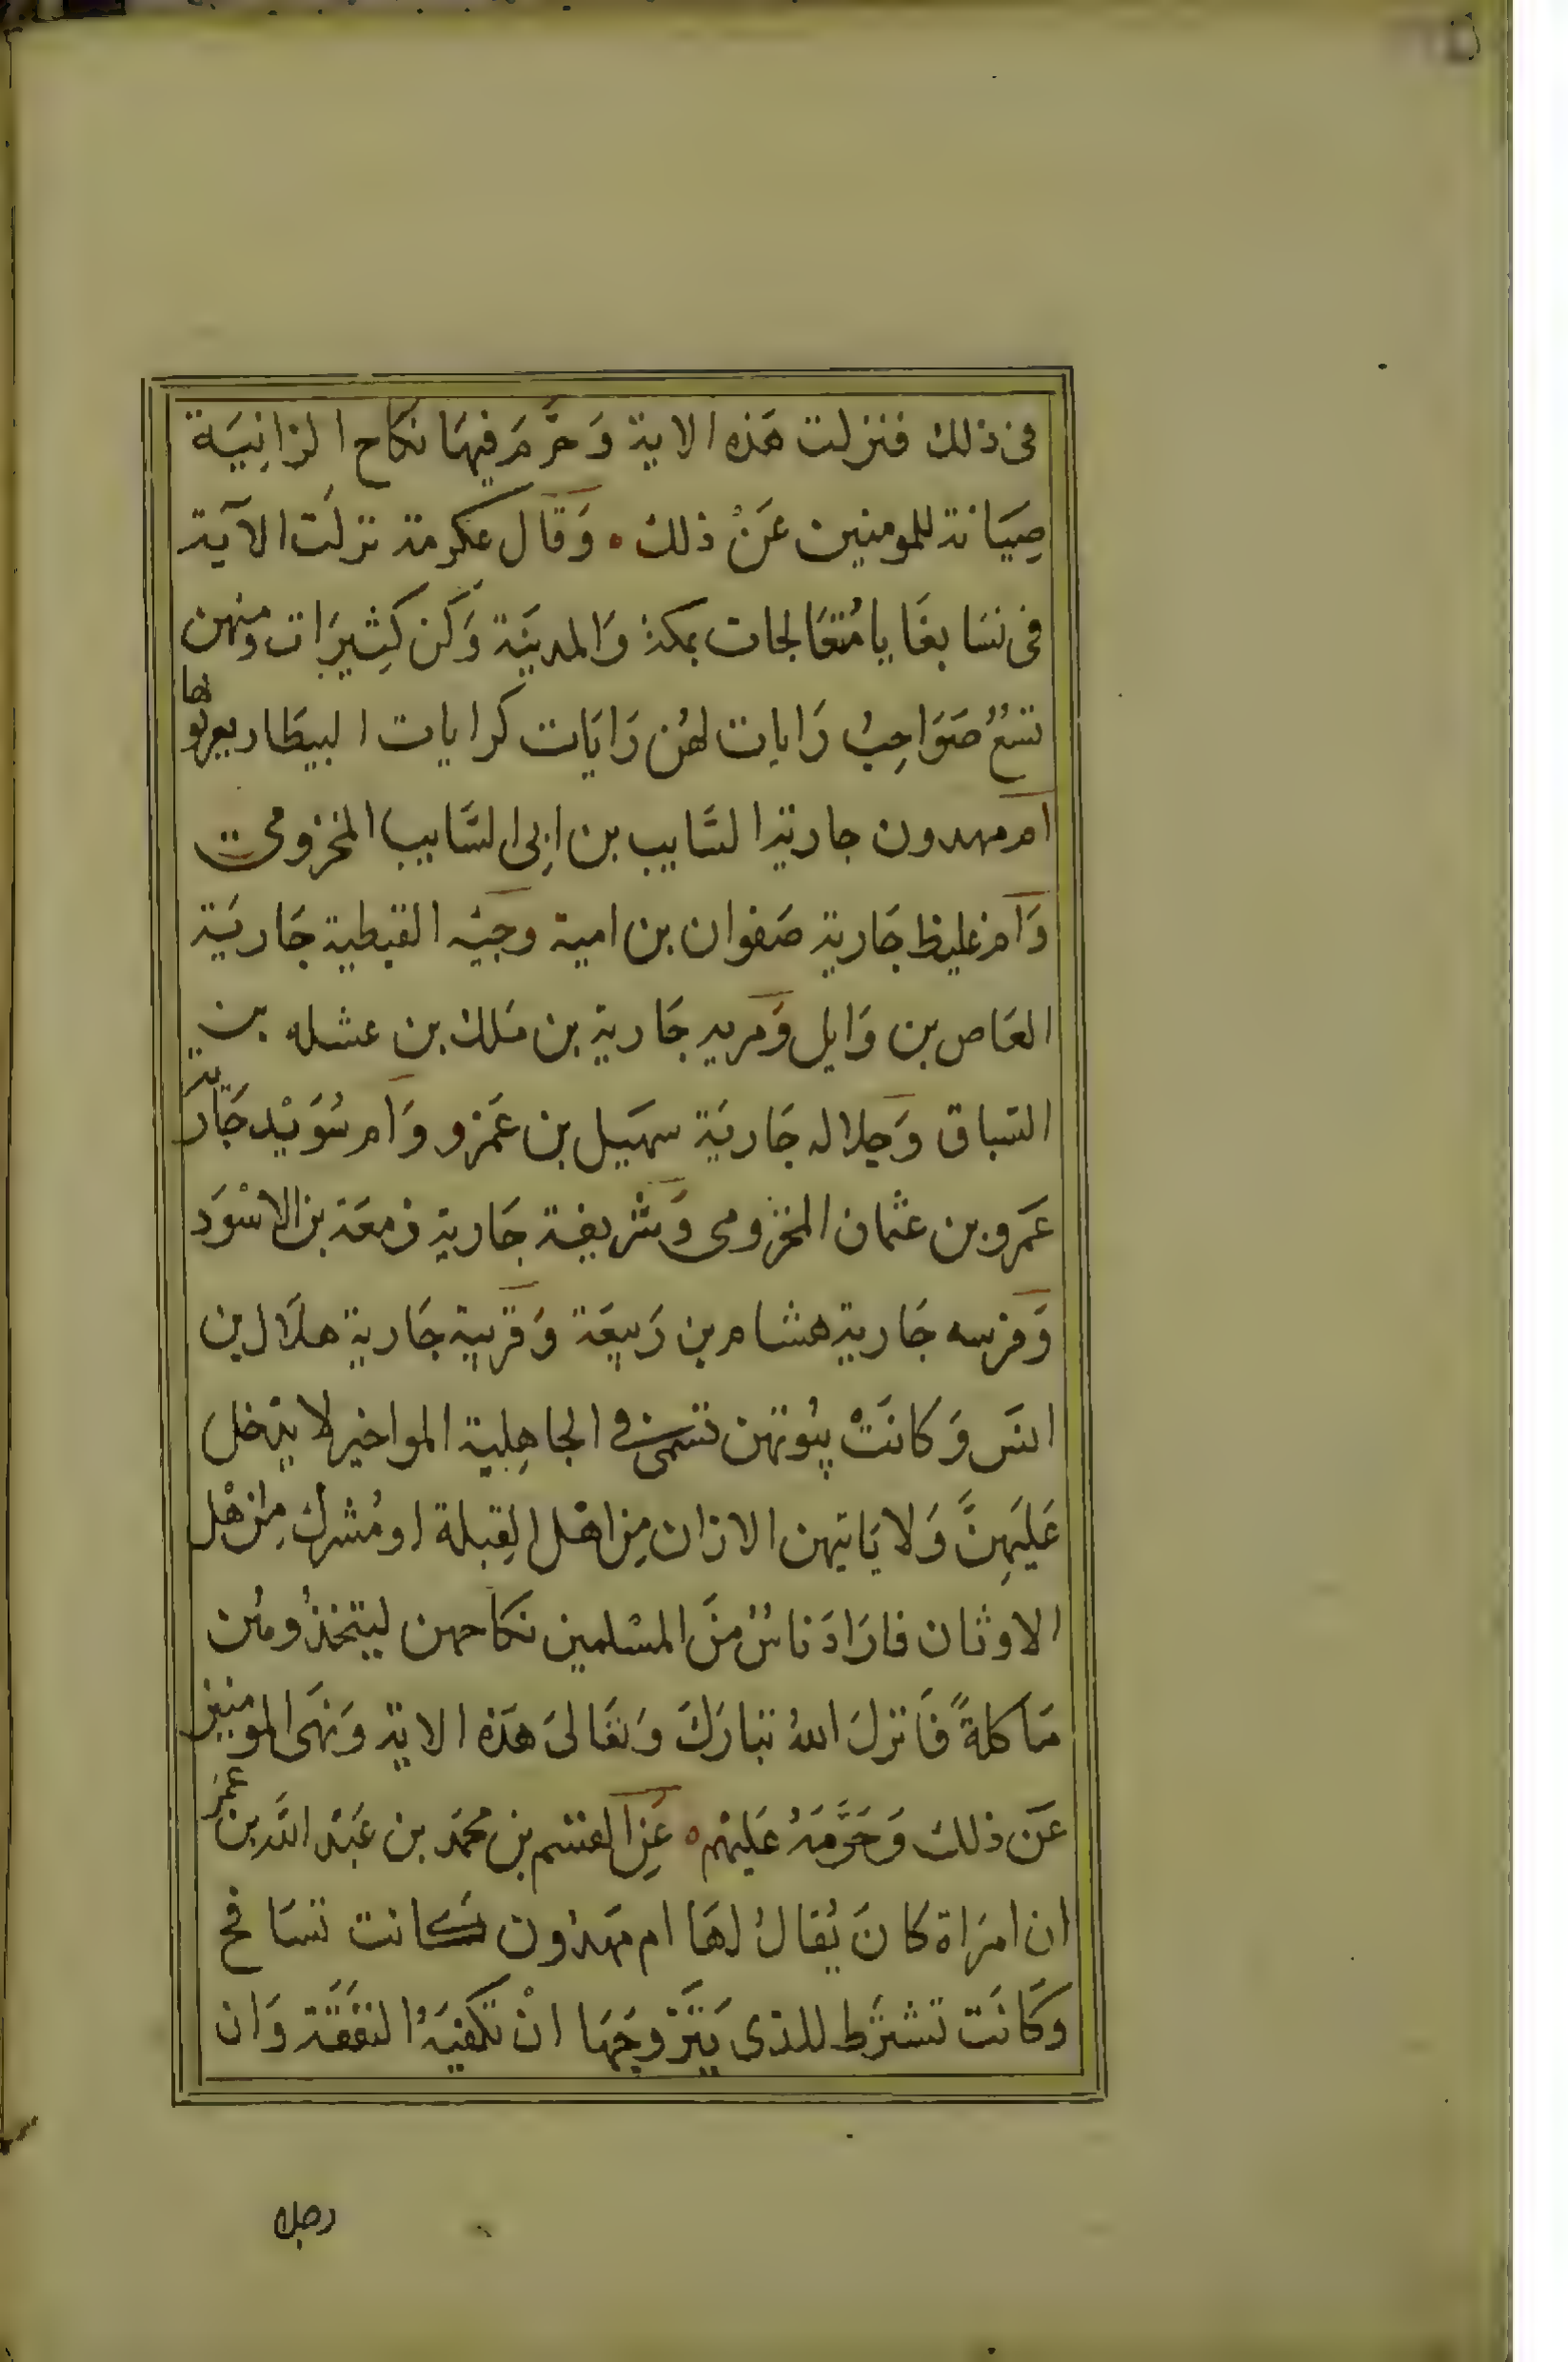 فى ذلك فنزلت هَذه الاية وَحرَّمَ فيهَا نكَاح الزانِيَة
صِيَانة للمومنين عَنْ ذلك ۰ وَقَال عكرمة نزلَت الآية
فى نسَا بغَايا مُتعَالجات بمكة وَالمدينَة وَكن كِثيرَات ومنهن
تسعُ صَوَاحِبُ رَايات لهُن رَايَات كرايات البيطار يعرفونها
ام مهدون جارية السَّايب بن ابِى السَّايب المخزومى
وَام غليظ جَارية صَفوان بن امية وحَيَّه القبطية جَاريَة
العَاص بن وَايل وَمريه جَارية بن مَلك بن عشله بن
السَباق وَجلاله جَاريَة سهَيل بن عَمرو وَام سُوَيْد جَارية
عَمرو بن عثمان المخزومى وَشريفة جَارية زمعَة بن الاسْوَد
وَفرسه جَارية هشام بن رَبيعَة وَقريبة جَارية هلَال بن
انسَ وَكانَتْ بيُوتهن تسمى في الجاهِلية المواخير لا يدخل
عَليَهِنَّ وَلا يَاتيهن الا زان مِن اهْل القِبلة او مُشرك مِن اهْل
الاوثان فارَادَ ناسُ منَ المسْلمين نكاحهن ليتخذُومُن
مَاكلةً فَانزلَ اللهُ تبارَكَ وَتعَالىَ هَذه الاية وَنهَى المومنين
عَن ذلك وَحَرَّمَهُ عَليهْم ۰ عَنِ القسم بن محمَد بن عَبْد اللَّه بن عمر
ان امرَاة كانَ يُقالُ لهَا ام مهَدُون كانت تسَافح
وَكَانَت تشترَط للذى يَتَزَوجَهَا انْ تكفيَهُ النفَقَة وَان
رجلا